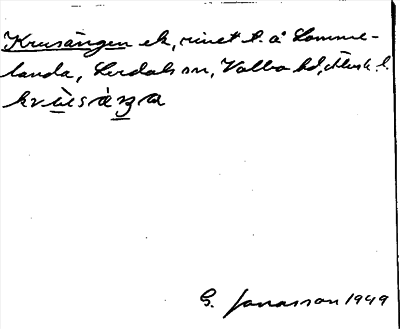 Krusängen ek, runet t. å Lomme-
landa, Lerdals sn, Valbo hd, Älvsb. l.
krùsàŋa
G. Jonasson 1949